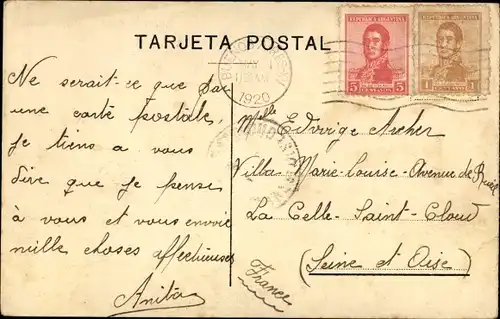 TARJETA POSTAL
REPUBLICA ARGENTINA
REPUBLICA ARGENTINA
5 CENTAVOS 5
1 CENTAVO 1
BUENOS AIRES
1920
Ne serait-ce que par
une carte postale,
je tiens a vous
dire que je pense
à vous et vous envoie
mille choses affectueuses
Anita
Melle Edwige Archer
Villa Marie-Louise-Avenue de
La Celle-Saint-Cloud
(Seine et Oise)
France